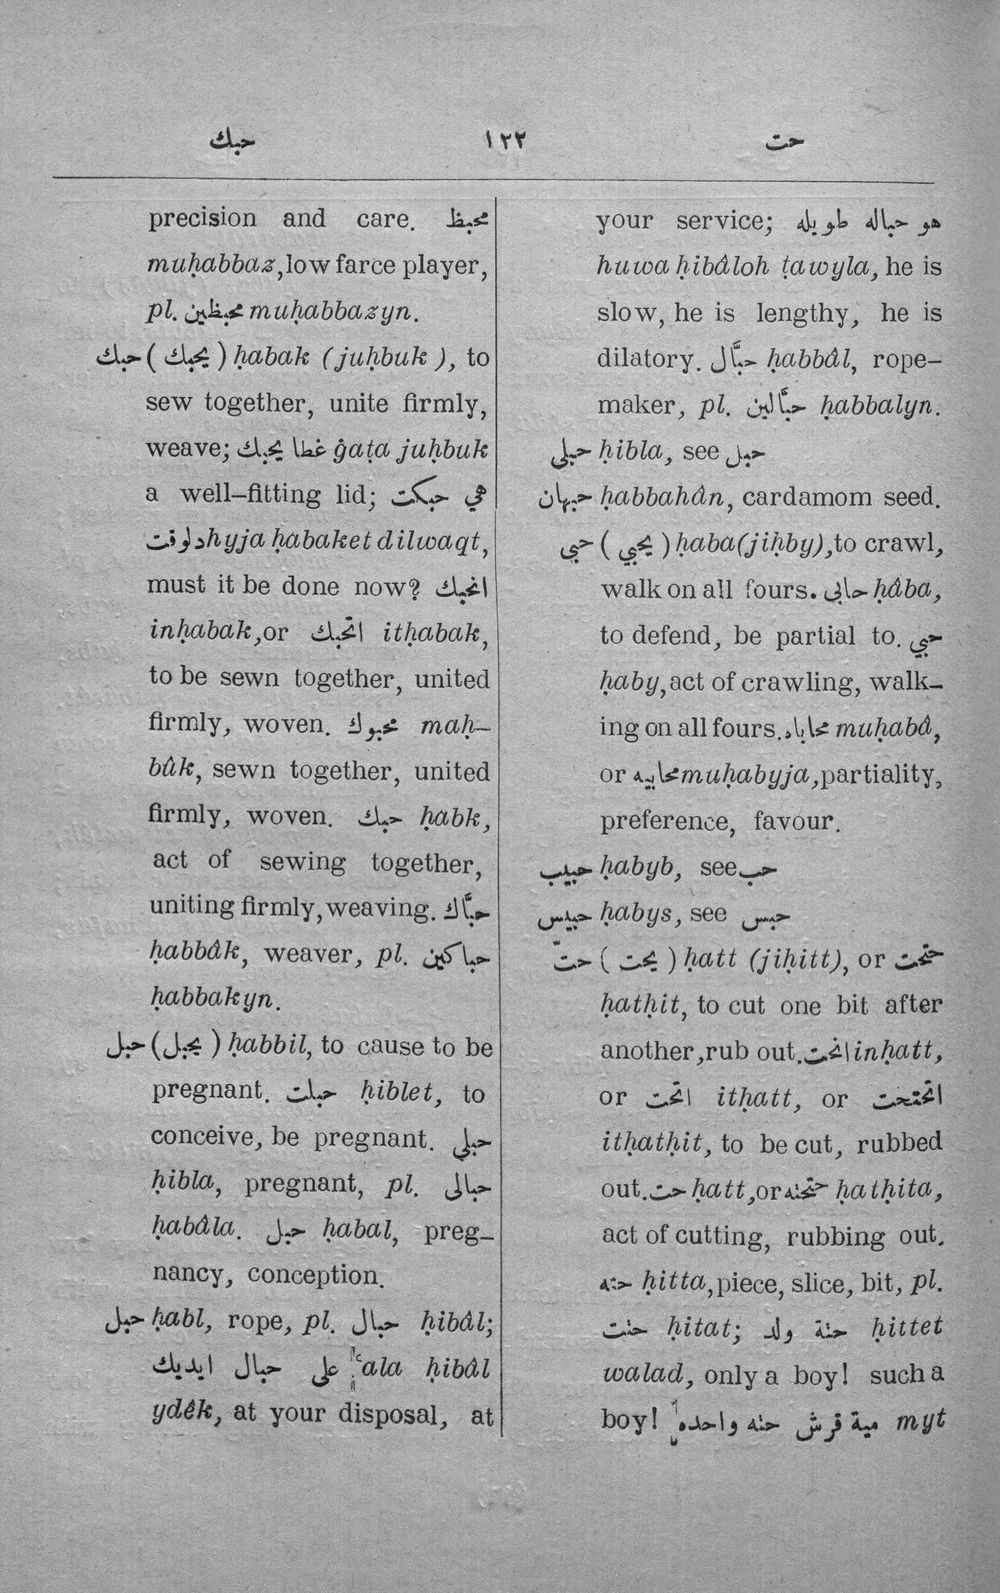 حبك ١٣٢ حت
precision and care. محبظ
muḥabbaz, low farce player,
pl. محبظين muḥabbazyn.
حبك ( يحبك ) ḥabak (juḥbuk ), to
sew together, unite firmly,
weave; غطا يحبك ĝaṭa juḥbuk
a well-fitting lid; هي حبكت
دلوقت hyja ḥabaket dilwaqt,
must it be done now? انحبك
inḥabak, or اتحبك itḥabak,
to be sewn together, united
firmly, woven. محبوك maḥ-
bûk, sewn together, united
firmly, woven. حبك ḥabk,
act of sewing together,
uniting firmly, weaving. حبَّاك
ḥabbâk, weaver, pl. حباكين
ḥabbakyn.
حبل ( يحبل ) ḥabbil, to cause to be
pregnant. حبلت ḥiblet, to
conceive, be pregnant. حبلي
ḥibla, pregnant, pl. حبالى
ḥabâla. حبل ḥabal, preg-
nancy, conception.
حبل ḥabl, rope, pl. حبال ḥibâl;
على حبال ايديك ʿala ḥibâl
ydêk, at your disposal, at
your service; هو حباله طويله
huwa ḥibâloh ṭawyla, he is
slow, he is lengthy, he is
dilatory. حبَّال ḥabbâl, rope-
maker, pl. حبَّالين ḥabbalyn.
حبلى ḥibla, see حبل
حبهان ḥabbahân, cardamom seed.
حبى ( يحبي ) ḥaba (jiḥby), to crawl,
walk on all fours. حابى ḥâba,
to defend, be partial to. حبي
ḥaby, act of crawling, walk-
ing on all fours. محاباه muḥabâ,
or محابيه muḥabyja, partiality,
preference, favour.
حبيب ḥabyb, see حب
حبيس ḥabys, see حبس
حتّ ( يحت ) ḥatt (jiḥitt), or حتحت
ḥatḥit, to cut one bit after
another, rub out. انحت inḥatt,
or اتحت itḥatt, or اتحتحت
itḥatḥit, to be cut, rubbed
out. حت ḥatt, or حتحته ḥatḥita,
act of cutting, rubbing out.
حته ḥitta, piece, slice, bit, pl.
حتت ḥitat; حتة ولد ḥittet
walad, only a boy! such a
boy! مية قرش حته واحده myt